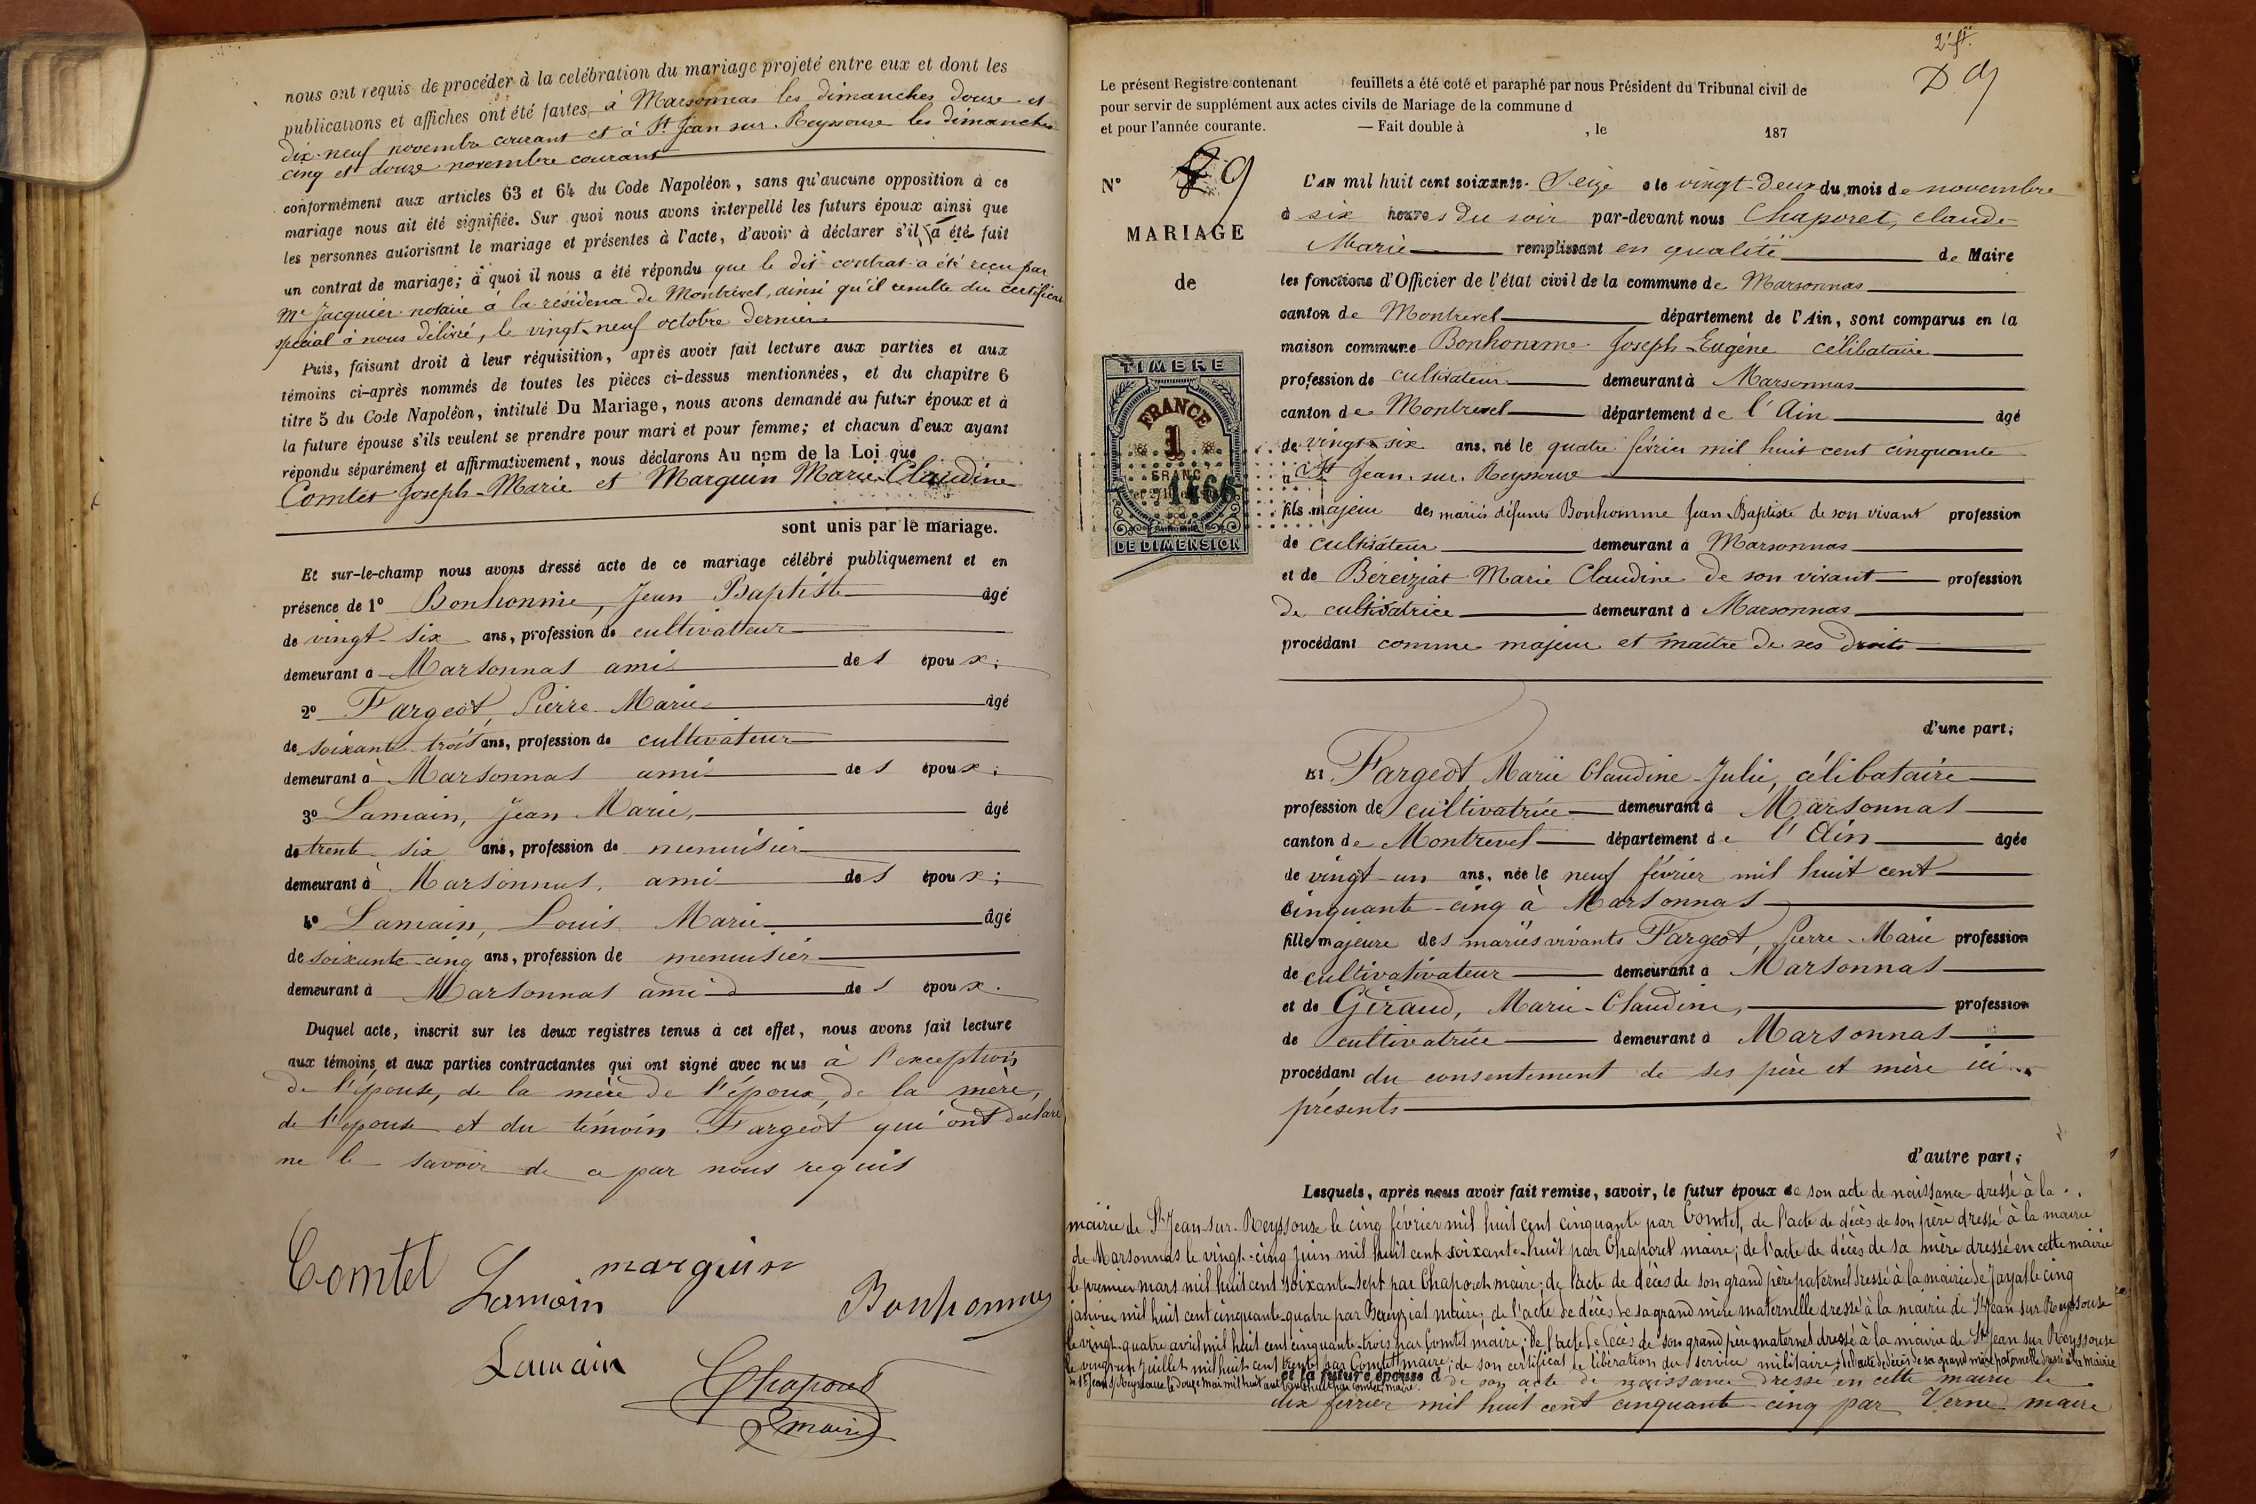 nous ont requis de procéder à la celébration du mariage projeté entre eux et dont les
publications et affiches ont été faites à Marsonnas les dimanches douze et
dix-neuf novembre courant et à St Jean sur Reyssouze les dimanches
cinq et douze novembre courant
conformément aux articles 63 et 64 du Code Napoléon, sans qu'aucune opposition à ce
mariage nous ait été signifiée. Sur quoi nous avons interpellé les futurs époux ainsi que
les personnes autorisant le mariage et présentes à l'acte, d'avoir à déclarer s'il a été fait
un contrat de mariage; à quoi il nous a été répondu que le dit contrat a été reçu par
Me Jacquier notaire à la résidence de Montrevel, ainsi qu'il resulte du certificat
spécial à nous délivré, le vingt-neuf octobre dernier
Puis, faisant droit à leur réquisition, après avoir fait lecture aux parties et aux
témoins ci-après nommés de toutes les pièces ci-dessus mentionnées, et du chapitre 6
titre 5 du Code Napoléon, intitulé Du Mariage, nous avons demandé au futur époux et à
la future épouse s'ils veulent se prendre pour mari et pour femme; et chacun d'eux ayant
répondu séparément et affirmativement, nous déclarons Au nom de la Loi que
Comtet Joseph-Marie et Marguin Marie-Claudine
sont unis par le mariage.
Et sur-le-champ nous avons dressé acte de ce mariage célébré publiquement et en
présence de 1º Bonhomme, Jean Baptiste âgé
de vingt-six ans, profession de cultivateur
demeurant à Marsonnas ami des époux;
2º Fargeot, Pierre-Marie âgé
de soixante trois ans, profession de cultivateur
demeurant à Marsonnas ami des époux;
3º Lamain, Jean Marie, âgé
de trente-six ans, profession de menuisier
demeurant à Marsonnas, ami des époux;
4º Lamain, Louis Marie âgé
de soixante-cinq ans, profession de menuisier
demeurant à Marsonnas ami des époux.
Duquel acte, inscrit sur les deux registres tenus à cet effet, nous avons fait lecture
aux témoins et aux parties contractantes qui ont signé avec nous à l'exception
de l'épouse, de la mère de l'époux, de la mère,
de l'épouse et du témoin Fargeot qui ont déclaré
ne le savoir de ce par nous requis
Comtet marguin
Lamain Bonhomme
Lamain Chaporet
maire
2e ft.
Le présent Registre contenant feuillets a été coté et paraphé par nous Président du Tribunal civil de
pour servir de supplément aux actes civils de Mariage de la commune d
et pour l'année courante. — Fait double à , le 187
Nº 9
MARIAGE
de
TIMBRE
FRANCE
1
FRANC
1466
DE DIMENSION
L'AN mil huit cent soixante-Seize e le vingt-deux du mois de novembre
à six heures du soir par-devant nous Chaporet, Claude
Marie remplissant en qualité de Maire
les fonctions d'Officier de l'état civil de la commune de Marsonnas
canton de Montrevel département de l'Ain, sont comparus en la
maison commune Bonhomme Joseph-Eugène célibataire
profession de cultivateur demeurant à Marsonnas
canton de Montrevel département de l'Ain âgé
de vingt-six ans, né le quatre février mil huit cent cinquante
à St Jean-sur-Reyssouze
fils majeur des mariés défunts Bonhomme Jean-Baptiste de son vivant profession
de cultivateur demeurant à Marsonnas
et de Béreiziat Marie Claudine de son vivant profession
de cultivatrice demeurant à Marsonnas
procédant comme majeur et maître de ses droits
d'une part;
Et Fargeot, Marie Claudine-Julie, célibataire
profession de cultivatrice demeurant à Marsonnas
canton de Montrevel département de l'Ain âgée
de vingt-un ans, née le neuf février mil huit cent
cinquante-cinq à Marsonnas
fille majeure des mariés vivants Fargeot, Pierre-Marie profession
de cultivativateur demeurant à Marsonnas
et de Giraud, Marie-Claudine, profession
de cultivatrice demeurant à Marsonnas
procédant du consentement de ses père et mère ici
présents
d'autre part;
Lesquels, après nous avoir fait remise, savoir, le futur époux de son acte de naissance dressé à la
mairie de St Jean-sur-Reyssouze le cinq février mil huit cent cinquante par Comtet, de l'acte de décès de son père dressé à la mairie
de Marsonnas le vingt-cinq Juin mil huit cent soixante-huit par Chaporet maire; de l'acte de décès de sa mère dressé en cette mairie
le premier mars mil huit cent soixante-sept par Chaporet maire; de l'acte de décès de son grand père paternel dressé à la mairie de Jayat le cinq
janvier mil huit cent cinquante-quatre par Bereyziat maire; de l'acte de décès de sa grand mère maternelle dressé à la mairie de St Jean sur Reyssouze
le vingt-quatre avril mil huit cent cinquante-trois par Comtet maire; de l'acte de décès de son grand père maternel dressé à la mairie de St Jean sur Reyssouze
le vingt-un Juillet mil huit cent trente par Comtet maire; de son certificat de libération du service militaire; de l'acte de décès de sa grand mère paternelle dressé à la mairie
de St Jean s/ Reyssouze le douze mai mil huit cent par Comtet maire.
et la future épouse d de son acte de naissance dressé en cette mairie le
dix février mil huit cent cinquante-cinq par Verne maire